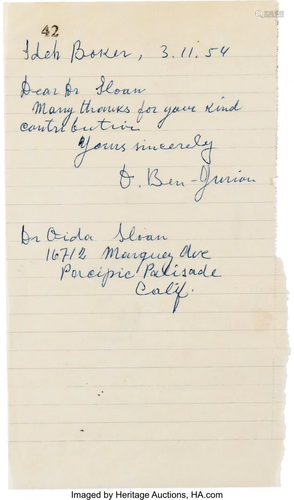 42
Sdeh Boker, 3.11.54
Dear Dr Sloan
Many thanks for your kind
contribution
Yours sincerely
D. Ben-Gurion
Dr Oida Sloan
16712 Marquez Ave
Porcipic Palisade
Calif.
Imaged by Heritage Auctions, HA.com